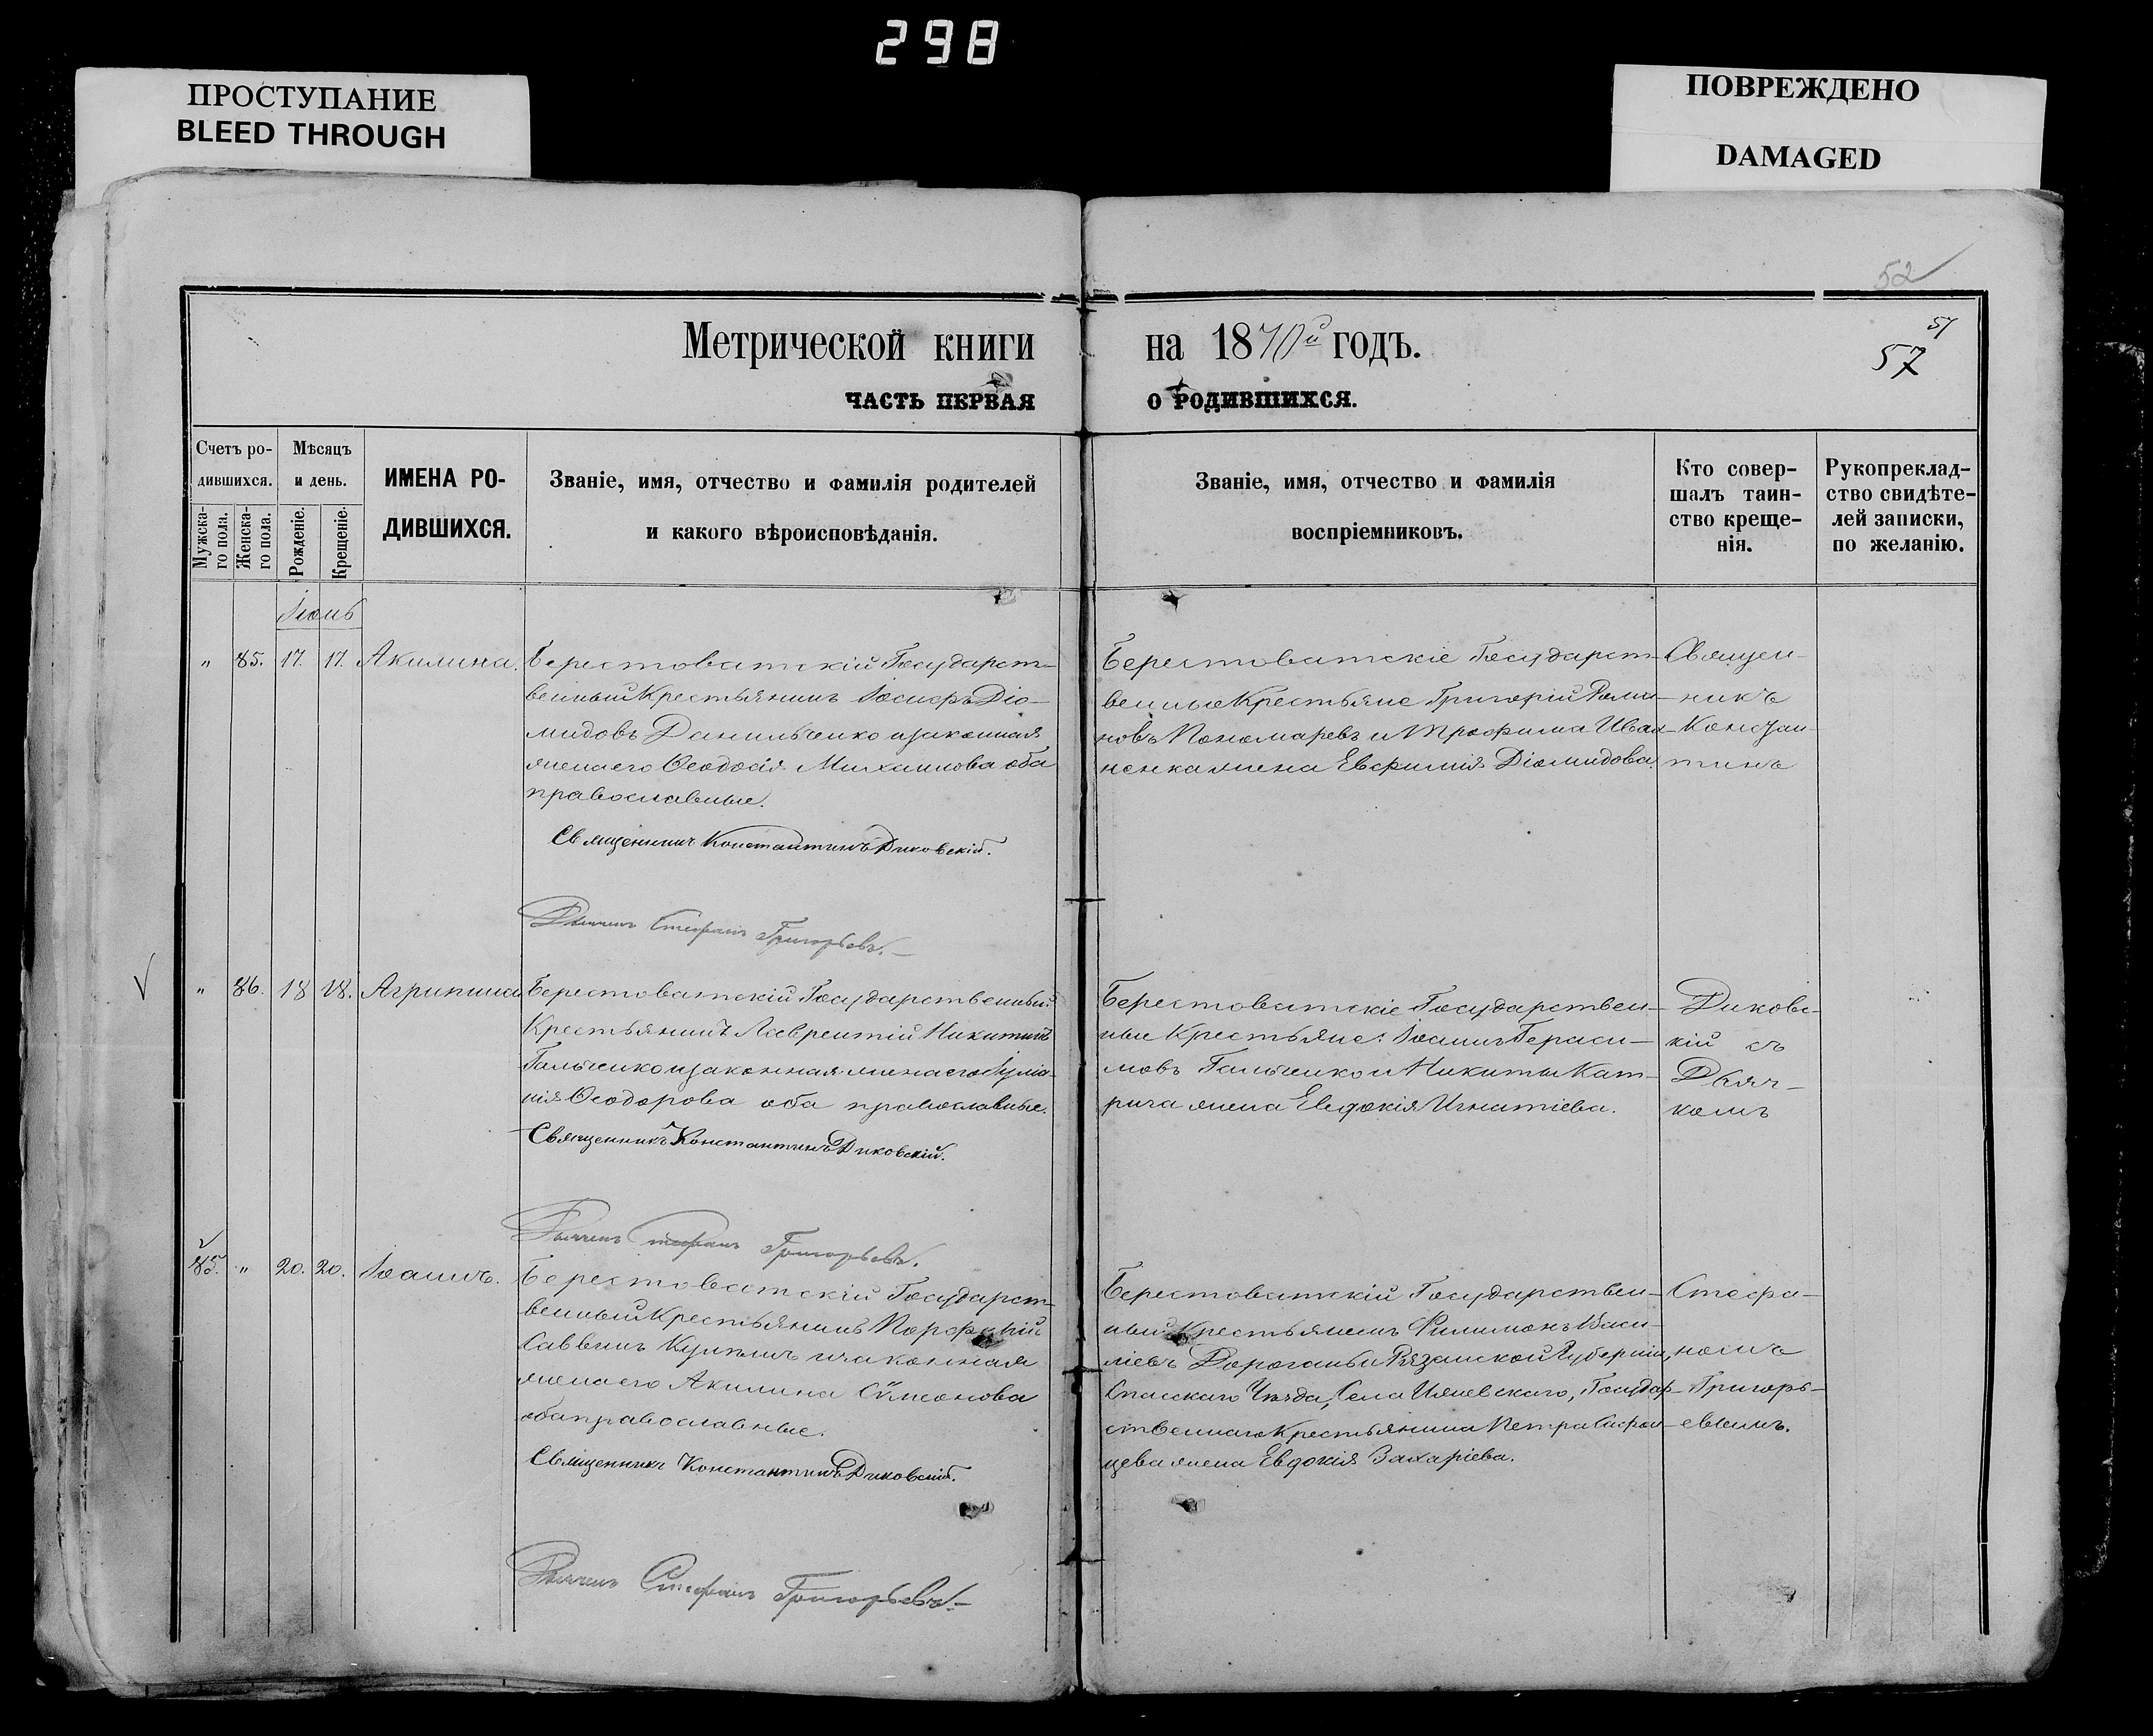 298
ПРОСТУПАНИЕ
BLEED THROUGH
ПОВРЕЖДЕНО
DAMAGED
52
57
57
Метрической книги на 1870й годъ.
ЧАСТЬ ПЕРВАЯ О РОДИВШИХСЯ.
Счетъ ро-
дившихся.
Мужска-
го пола.
Женска-
го пола.
Мѣсяцъ
и день.
Рожденіе.
Крещеніе.
ИМЕНА РО-
ДИВШИХСЯ.
Званіе, имя, отчество и фамилія родителей
и какого вѣроисповѣданія.
Званіе, имя, отчество и фамилія
воспріемниковъ.
Кто совер-
шалъ таин-
ство креще-
нія.
Рукоприклад-
ство свидѣте-
лей записки,
по желанію.
Іюнь
" 85. 17. 17. Акилина.
Берестоватскій Государст-
венный Крестьянинъ Іосифъ Діо-
мидовъ Данильченко и законная
жена его Ѳеодосія Михаилова оба
православные.
Священникъ Константинъ Диковскій.
Дьячекъ Стефанъ Григорьевъ.
Берестоватскіе Государст-
венные Крестьяне Григорій Рома-
новъ Пономаревъ и Трофима Иван-
ненка жена Евфимія Діомидова.
Священ-
никъ
Констан-
тинъ
" 86. 18 18. Агрипина
Берестоватскій Государственный
Крестьянинъ Лаврентій Никитинъ
Гальченко и законная жена его Іуліа-
нія Ѳеодорова оба православные.
Священникъ Константинъ Диковскій.
Дьячекъ Стефанъ Григорьевъ.
Берестоватскіе Государствен-
ные Крестьяне: Іоаннъ Гераси-
мовъ Гальченко и Никиты Кат-
рича жена Евдокія Игнатіева.
Диковс-
кій съ
Дьяч-
комъ
85. " 20. 20. Іоаннъ.
Берестоватскій Государст-
венный Крестьянинъ Порфирій
Саввинъ и законная
жена его Акилина Сѵмеонова
оба православные.
Священникъ Константинъ Диковскій.
Дьячекъ Стефанъ Григорьевъ.
Берестоватскій Государствен-
ный Крестьянинъ Филимонъ Васи-
ліевъ Дорогань и Рязанской Губерніи,
Спасскаго Уѣзда, Села Государ-
ственнаго Крестьянина Петра
жена Евдокія Захаріева.
Стефа-
номъ
Григорь-
евымъ.